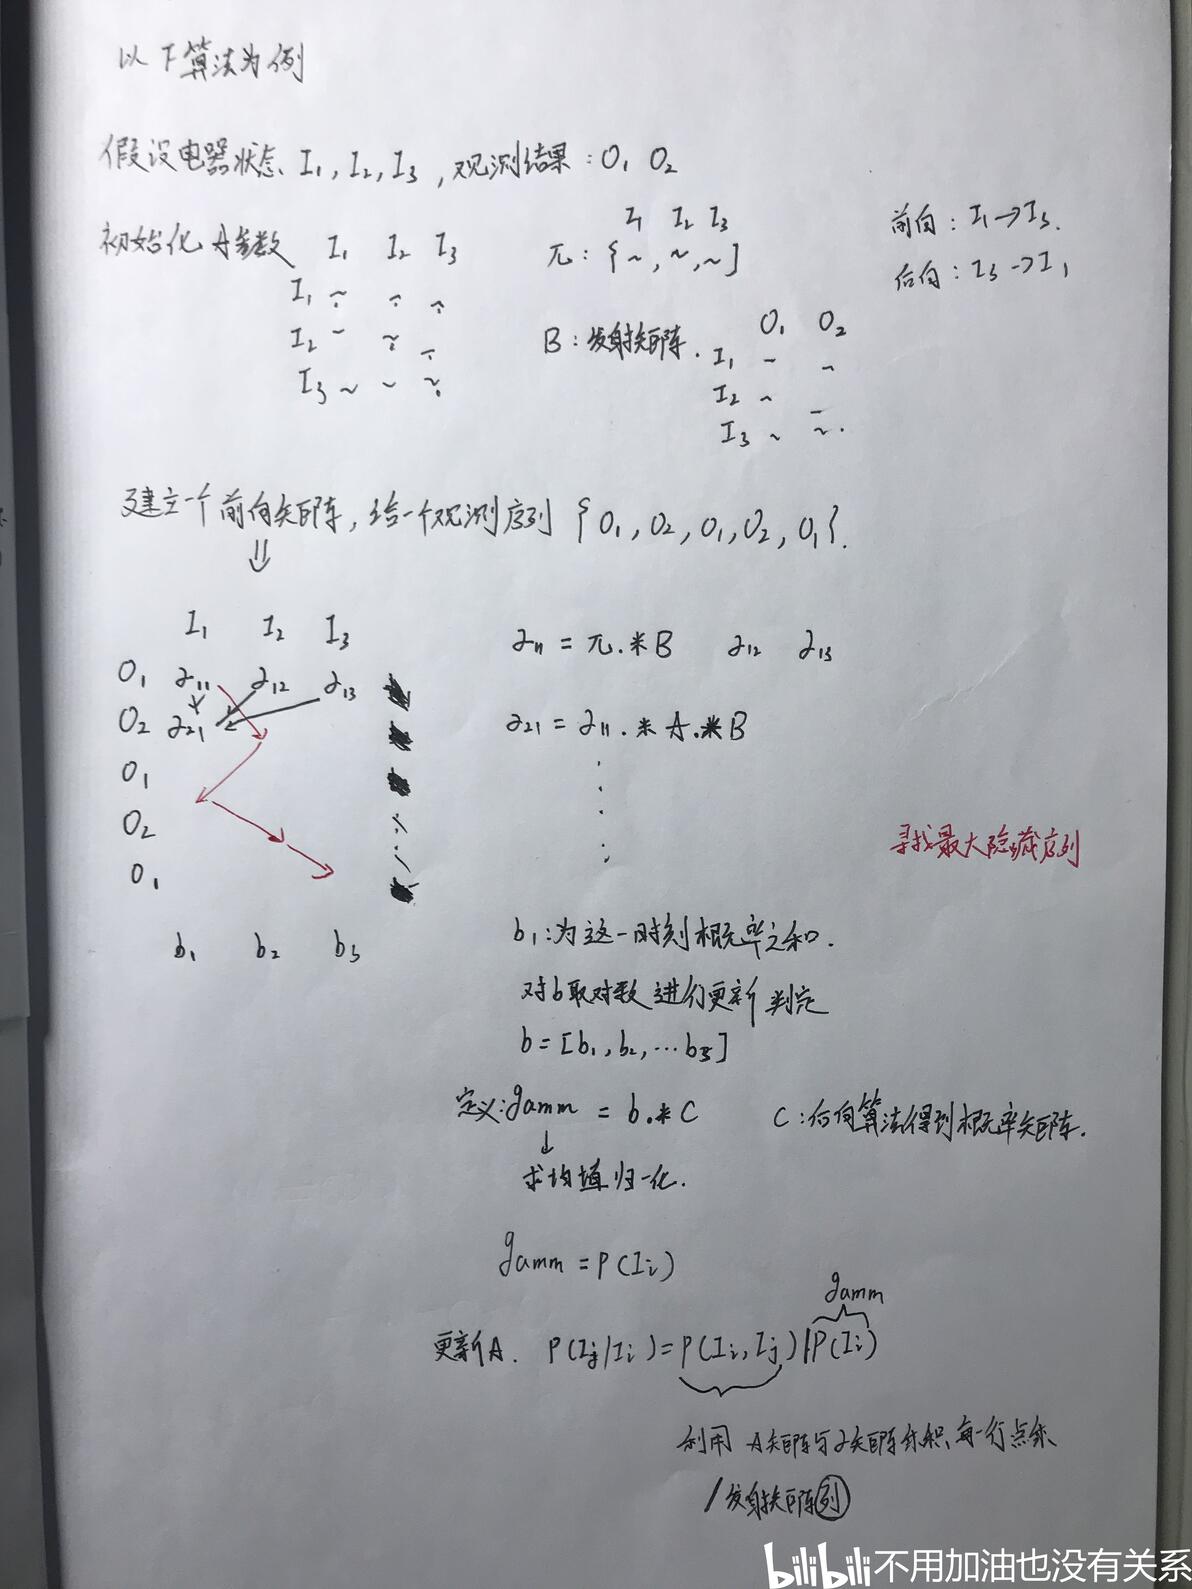 以下算法为例
假设电器状态 I₁, I₂, I₃, 观测结果: O₁ O₂
初始化 A参数 I₁ I₂ I₃
I₁ ~ ~ ~
I₂ ~ ~ ~
I₃ ~ ~ ~
I₁ I₂ I₃
π: {~, ~, ~]
前向: I₁→I₃.
后向: I₃→I₁
B: 发射矩阵. O₁ O₂
I₁ ~ ~
I₂ ~ ~
I₃ ~ ~.
建立一个前向矩阵, 给一个观测序列 {O₁, O₂, O₁, O₂, O₁}.
⇓
I₁ I₂ I₃
O₁ ∂₁₁ ∂₁₂ ∂₁₃
O₂ ∂₂₁
O₁
O₂
O₁
b₁ b₂ b₃
∂₁₁ = π.*B ∂₁₂ ∂₁₃
∂₂₁ = ∂₁₁.*A.*B
寻找最大隐藏序列
b₁: 为这一时刻概率之和.
对b取对数进行更新判定
b = [b₁, b₂, ⋯ b₅]
定义: gamm = b.*C C: 后向算法得到概率矩阵.
↓
求均值归一化.
gamm = P(Iᵢ)
gamm
更新A. P(Iⱼ|Iᵢ) = P(Iᵢ, Iⱼ) / P(Iᵢ)
利用 A矩阵与∂矩阵乘积, 每一行点乘
/发射矩阵列
bilibili 不用加油也没有关系